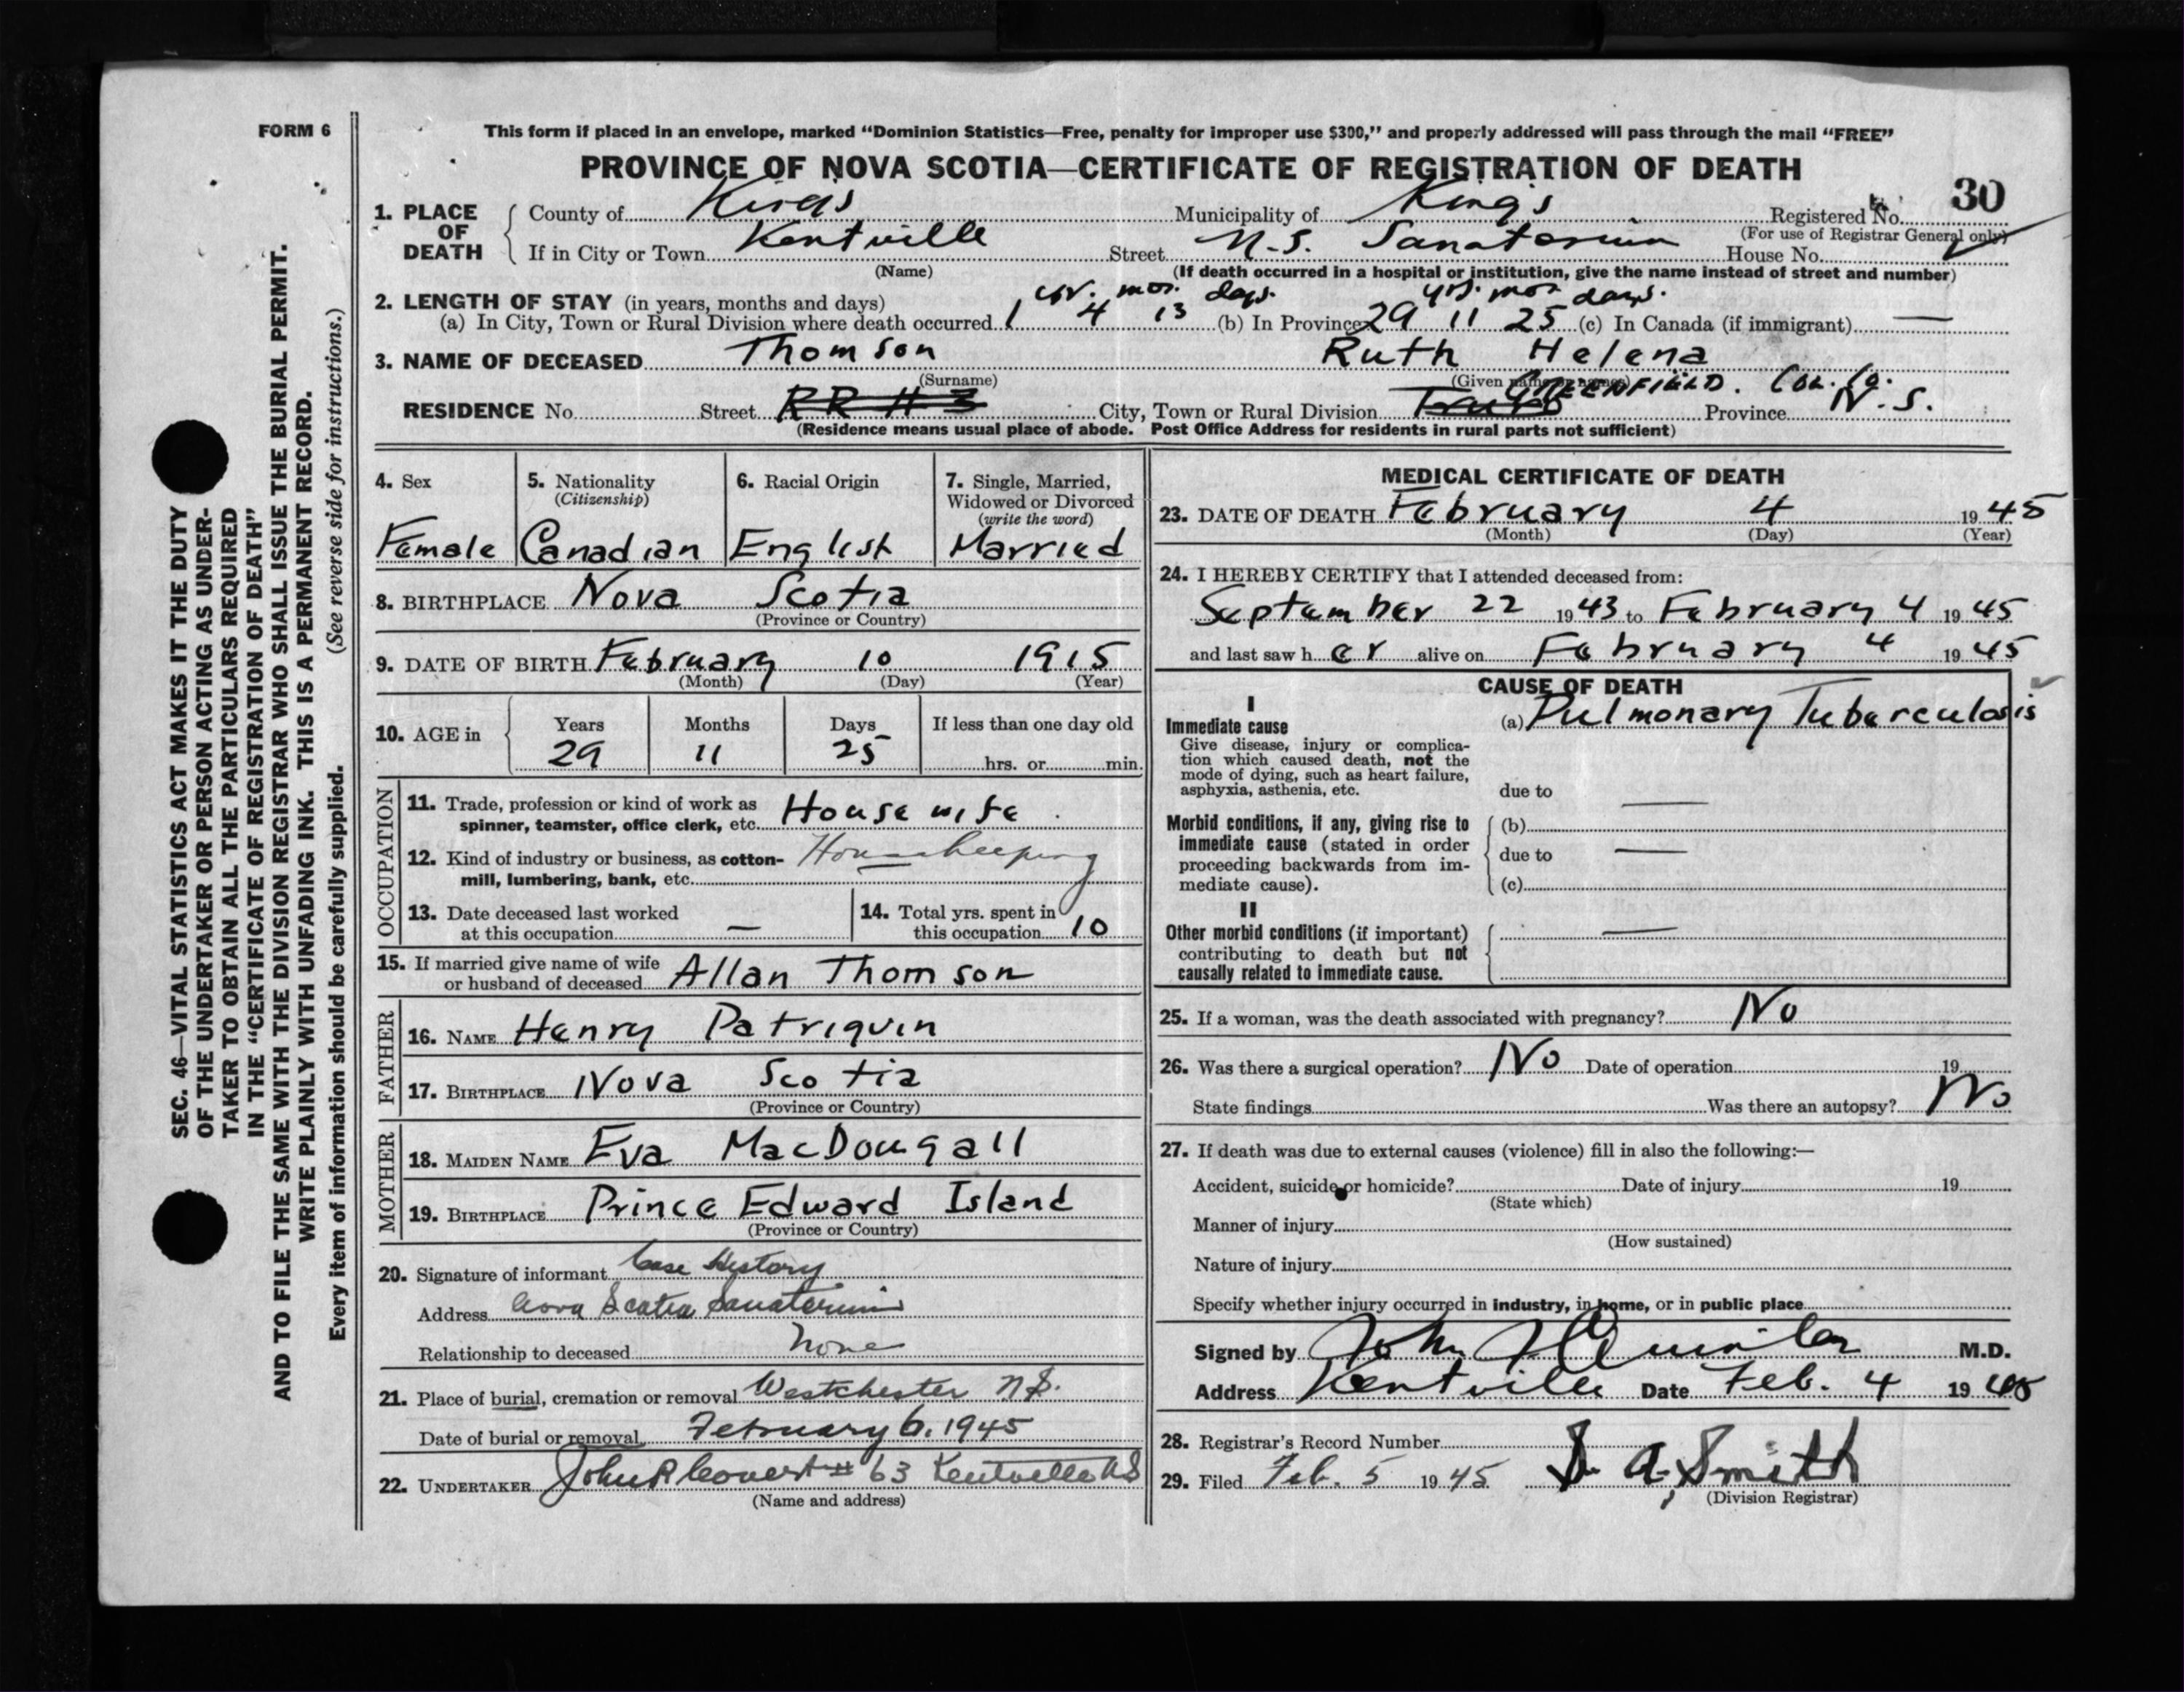 FORM 6
This form if placed in an envelope, marked “Dominion Statistics—Free, penalty for improper use $300,” and properly addressed will pass through the mail “FREE”
PROVINCE OF NOVA SCOTIA—CERTIFICATE OF REGISTRATION OF DEATH
30
1. PLACE OF DEATH County of Kings Municipality of Kings Registered No.
(For use of Registrar General only)
If in City or Town Kentville Street N.S. Sanatorium House No.
(Name) (If death occurred in a hospital or institution, give the name instead of street and number)
2. LENGTH OF STAY (in years, months and days) yr. mos. days. yrs. mos days.
(a) In City, Town or Rural Division where death occurred 1 4 13 (b) In Province 29 11 25 (c) In Canada (if immigrant) —
3. NAME OF DECEASED Thomson Ruth Helena
(Surname) (Given name or names)
GREENFIELD. Col. Co.
RESIDENCE No. Street RR # 3 City, Town or Rural Division Truro Province N.S.
(Residence means usual place of abode. Post Office Address for residents in rural parts not sufficient)
4. Sex 5. Nationality 6. Racial Origin 7. Single, Married,
(Citizenship) Widowed or Divorced
(write the word)
Female Canadian English Married
8. BIRTHPLACE Nova Scotia
(Province or Country)
9. DATE OF BIRTH February 10 1915
(Month) (Day) (Year)
10. AGE in Years Months Days If less than one day old
29 11 25 hrs. or min.
OCCUPATION
11. Trade, profession or kind of work as
spinner, teamster, office clerk, etc. House wife.
12. Kind of industry or business, as cotton- Housekeeping
mill, lumbering, bank, etc.
13. Date deceased last worked 14. Total yrs. spent in
at this occupation — this occupation 10
15. If married give name of wife
or husband of deceased Allan Thomson
FATHER
16. NAME Henry Patriquin
17. BIRTHPLACE Nova Scotia
(Province or Country)
MOTHER
18. MAIDEN NAME Eva MacDougall
19. BIRTHPLACE Prince Edward Island
(Province or Country)
20. Signature of informant Case History
Address Nova Scotia Sanatorium
Relationship to deceased None
21. Place of burial, cremation or removal Westchester N.S.
Date of burial or removal February 6, 1945
22. UNDERTAKER John R Covert # 63 Kentville NS
(Name and address)
MEDICAL CERTIFICATE OF DEATH
23. DATE OF DEATH February 4 1945
(Month) (Day) (Year)
24. I HEREBY CERTIFY that I attended deceased from:
September 22 1943 to February 4 1945
and last saw her alive on February 4 1945
CAUSE OF DEATH
I
Immediate cause (a) Pulmonary Tuberculosis
Give disease, injury or complica-
tion which caused death, not the
mode of dying, such as heart failure,
asphyxia, asthenia, etc. due to —
Morbid conditions, if any, giving rise to (b)
immediate cause (stated in order
proceeding backwards from im- due to —
mediate cause). (c)
II
Other morbid conditions (if important) —
contributing to death but not
causally related to immediate cause.
25. If a woman, was the death associated with pregnancy? No
26. Was there a surgical operation? No Date of operation 19
State findings Was there an autopsy? No
27. If death was due to external causes (violence) fill in also the following:—
Accident, suicide or homicide? Date of injury 19
(State which)
Manner of injury
(How sustained)
Nature of injury
Specify whether injury occurred in industry, in home, or in public place
Signed by John M.D.
Address Kentville Date Feb. 4 1945
28. Registrar's Record Number
29. Filed Feb. 5 1945 A. Smith
(Division Registrar)
SEC. 46—VITAL STATISTICS ACT MAKES IT THE DUTY
OF THE UNDERTAKER OR PERSON ACTING AS UNDER-
TAKER TO OBTAIN ALL THE PARTICULARS REQUIRED
IN THE “CERTIFICATE OF REGISTRATION OF DEATH”
AND TO FILE THE SAME WITH THE DIVISION REGISTRAR WHO SHALL ISSUE THE BURIAL PERMIT.
WRITE PLAINLY WITH UNFADING INK. THIS IS A PERMANENT RECORD.
Every item of information should be carefully supplied. (See reverse side for instructions.)